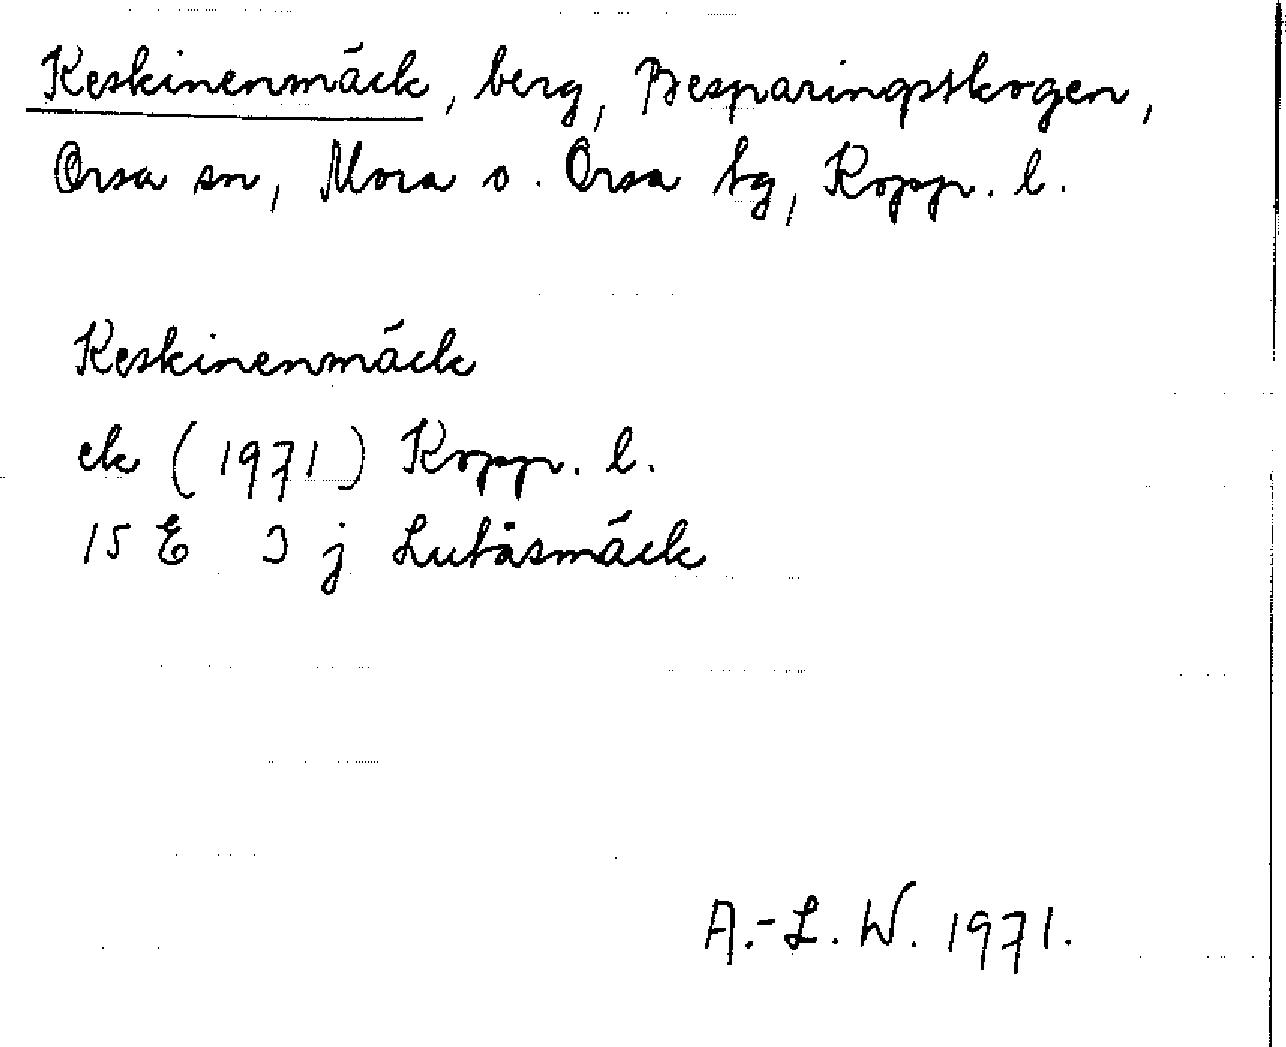 Keskinenmäck, berg, Besparingsskogen,
Orsa sn, Mora o. Orsa tg, Kopp. l.
Keskinenmäck
ek (1971) Kopp. l.
15 E 3 j Lutåsmäck
A.-L. W. 1971.